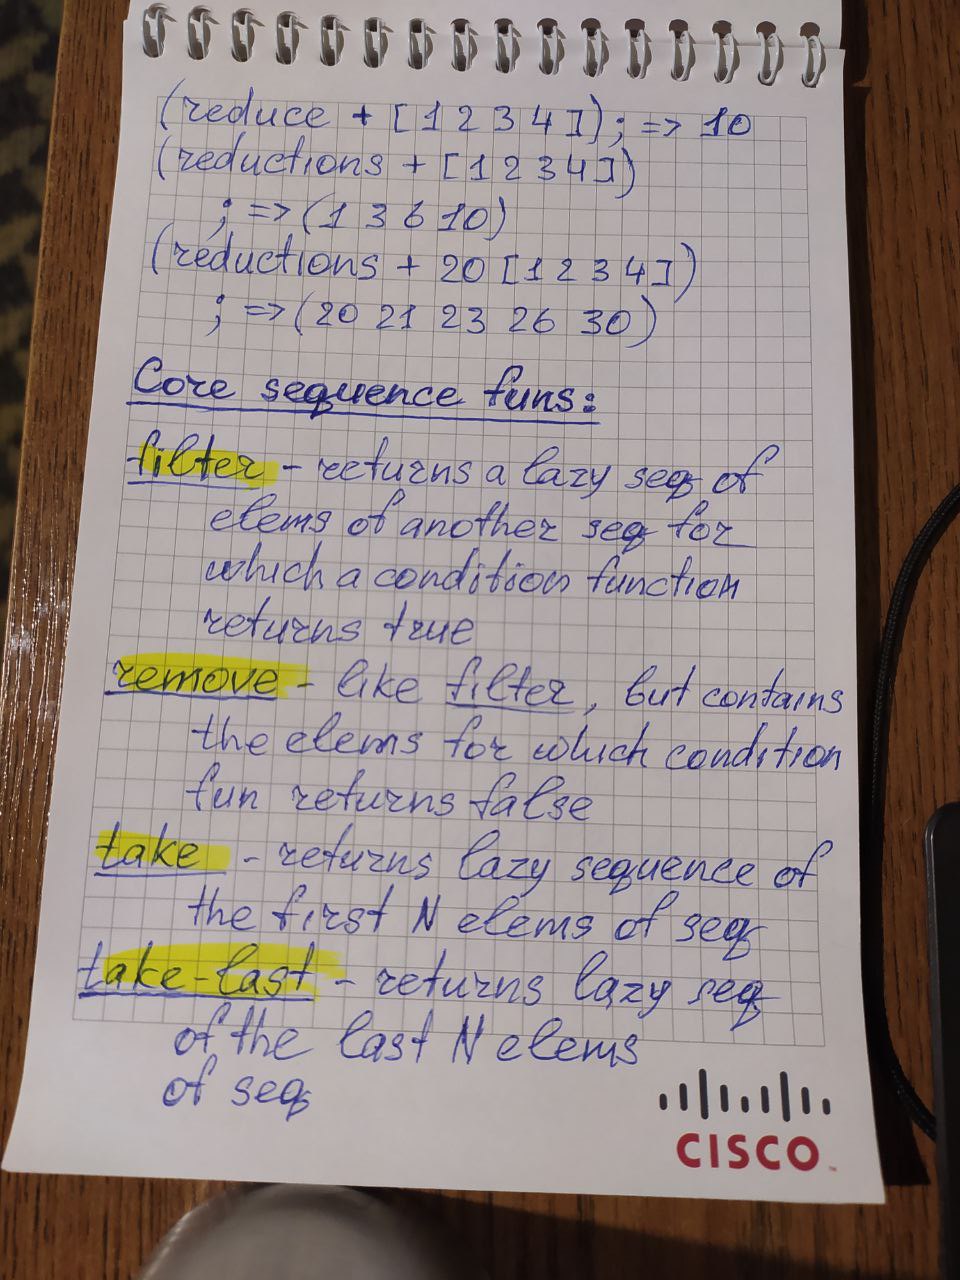 (reduce + [1 2 3 4]); => 10
(reductions + [1 2 3 4])
; => (1 3 6 10)
(reductions + 20 [1 2 3 4])
; => (20 21 23 26 30)
Core sequence funs:
filter - returns a lazy seq of
elems of another seq for
which a condition function
returns true
remove - like filter, but contains
the elems for which condition
fun returns false
take - returns lazy sequence of
the first N elems of seq
take-last - returns lazy seq
of the last N elems
of seq
CISCO